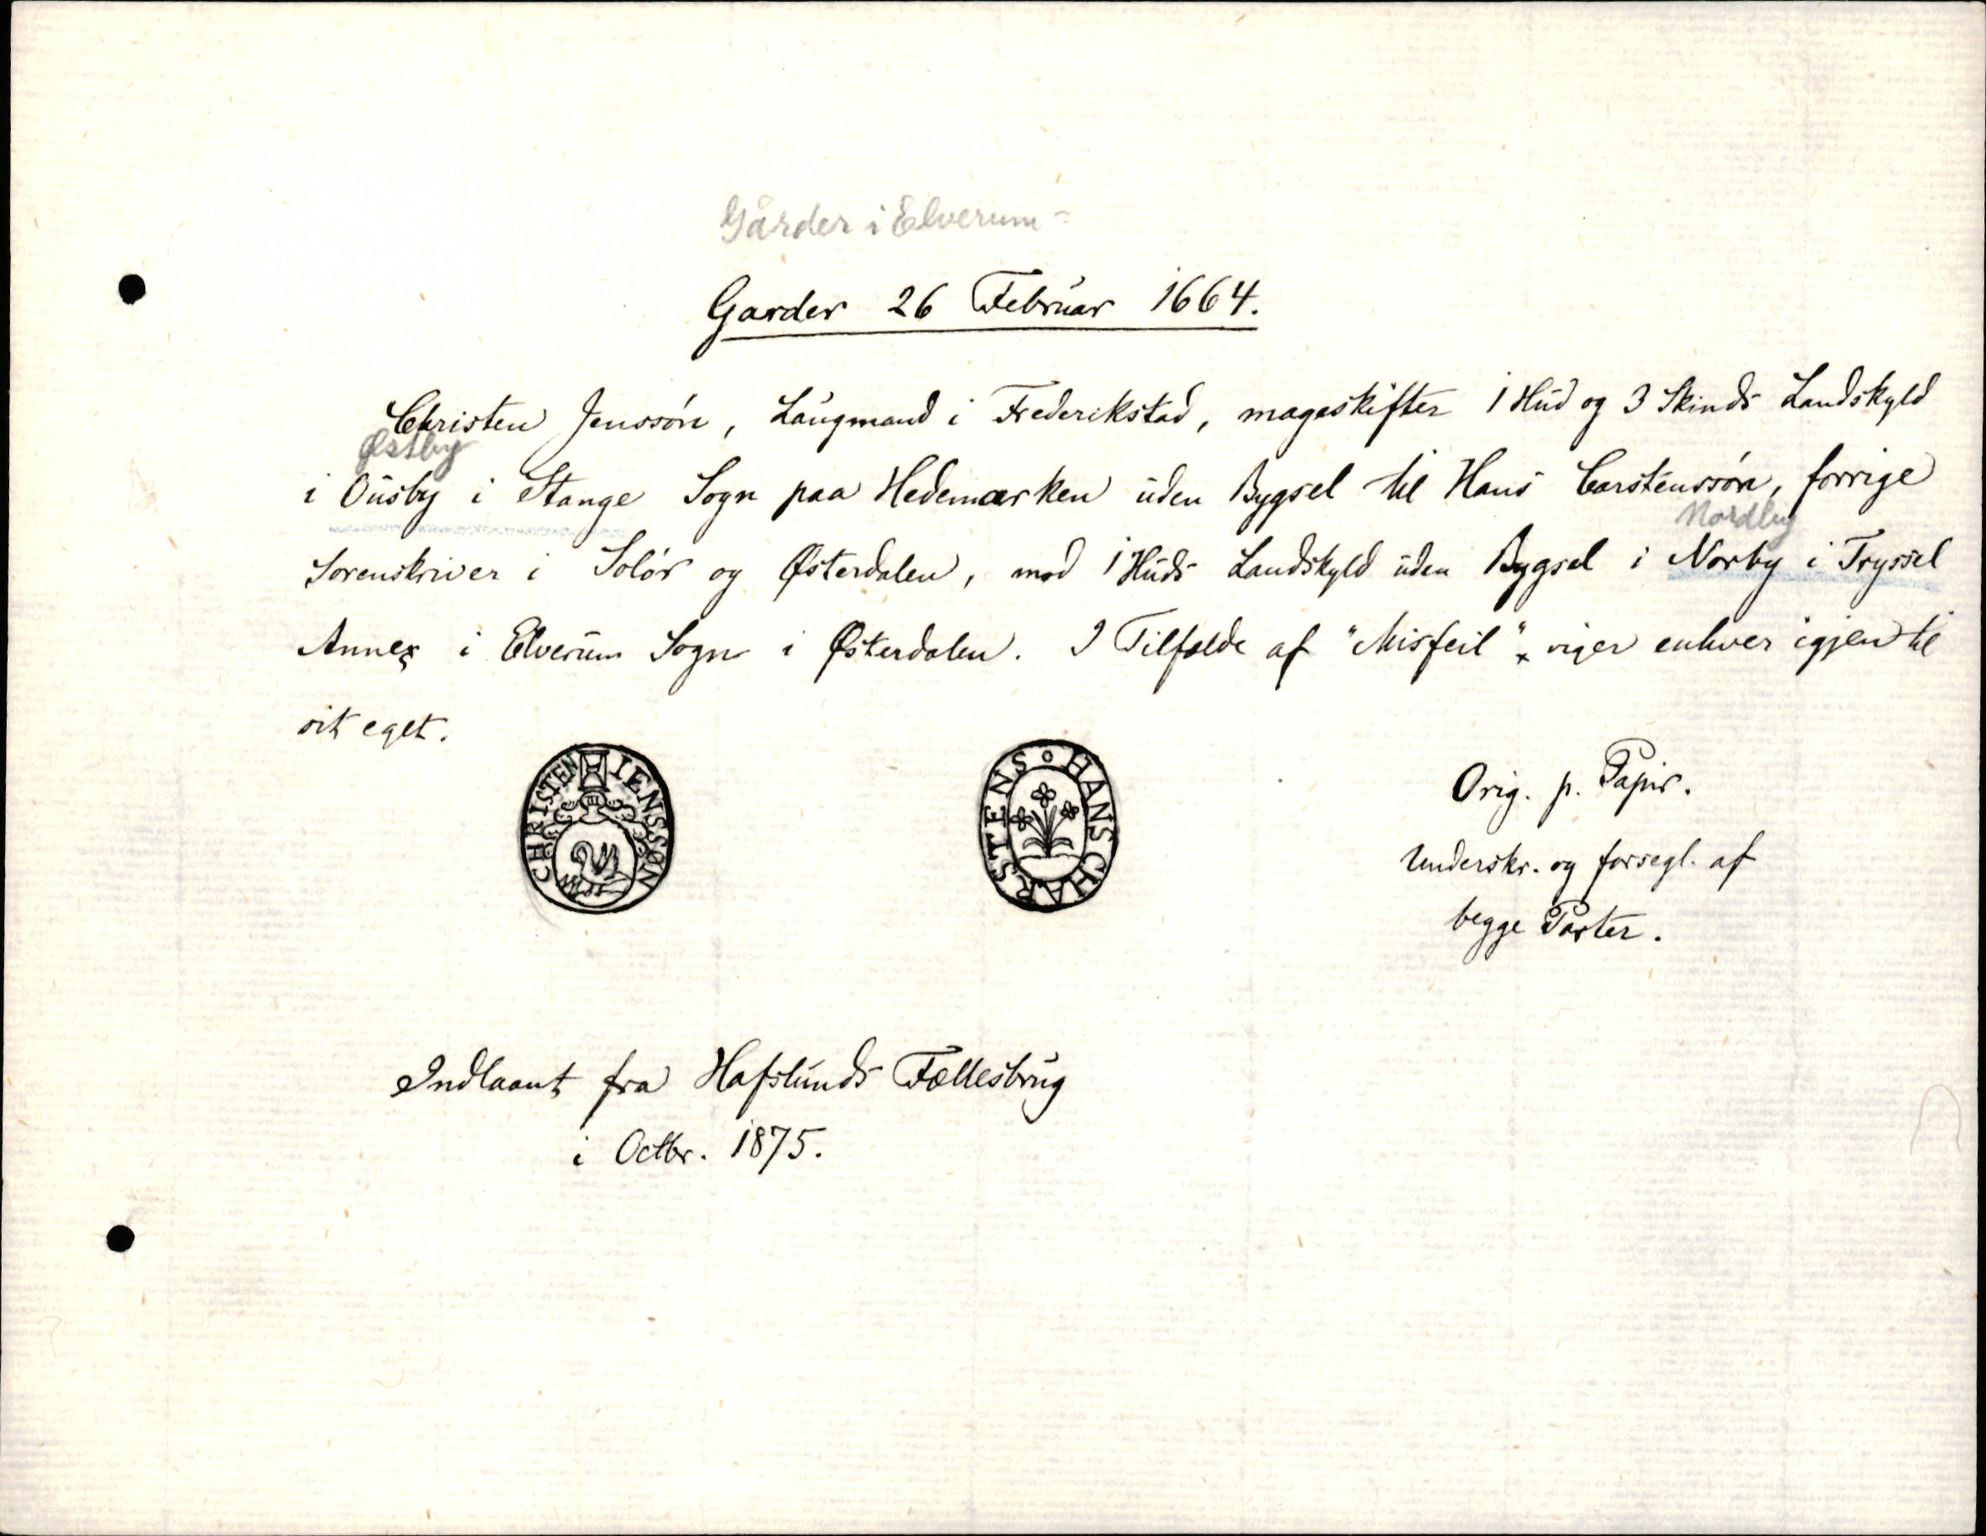 Gårder i Elverum -
Garder 26 Februar 1664.
Christen Jenssön, Laugmand i Frederikstad, mageskifter 1 Hud og 3 Skinds Landskyld
Østby
i Ousby i Stange Sogn paa Hedemarken uden Bygsel til Hans Carstenssön, forrige
Nordby
Sorenskriver i Solör og Østerdalen, mod 1 Huds Landskyld uden Bygsel i Norby i Tryssel
Annex i Elverum Sogn i Østerdalen. I Tilfælde af "Misfeil" viger enhver igjen til
sit eget.
CHRISTEN IENSSØN
HANS CHARSTENS
Orig. p. Papir.
Underskr. og forsegl. af
begge Parter.
Indlaant fra Hafslunds Fællesbrug
i Octbr. 1875.